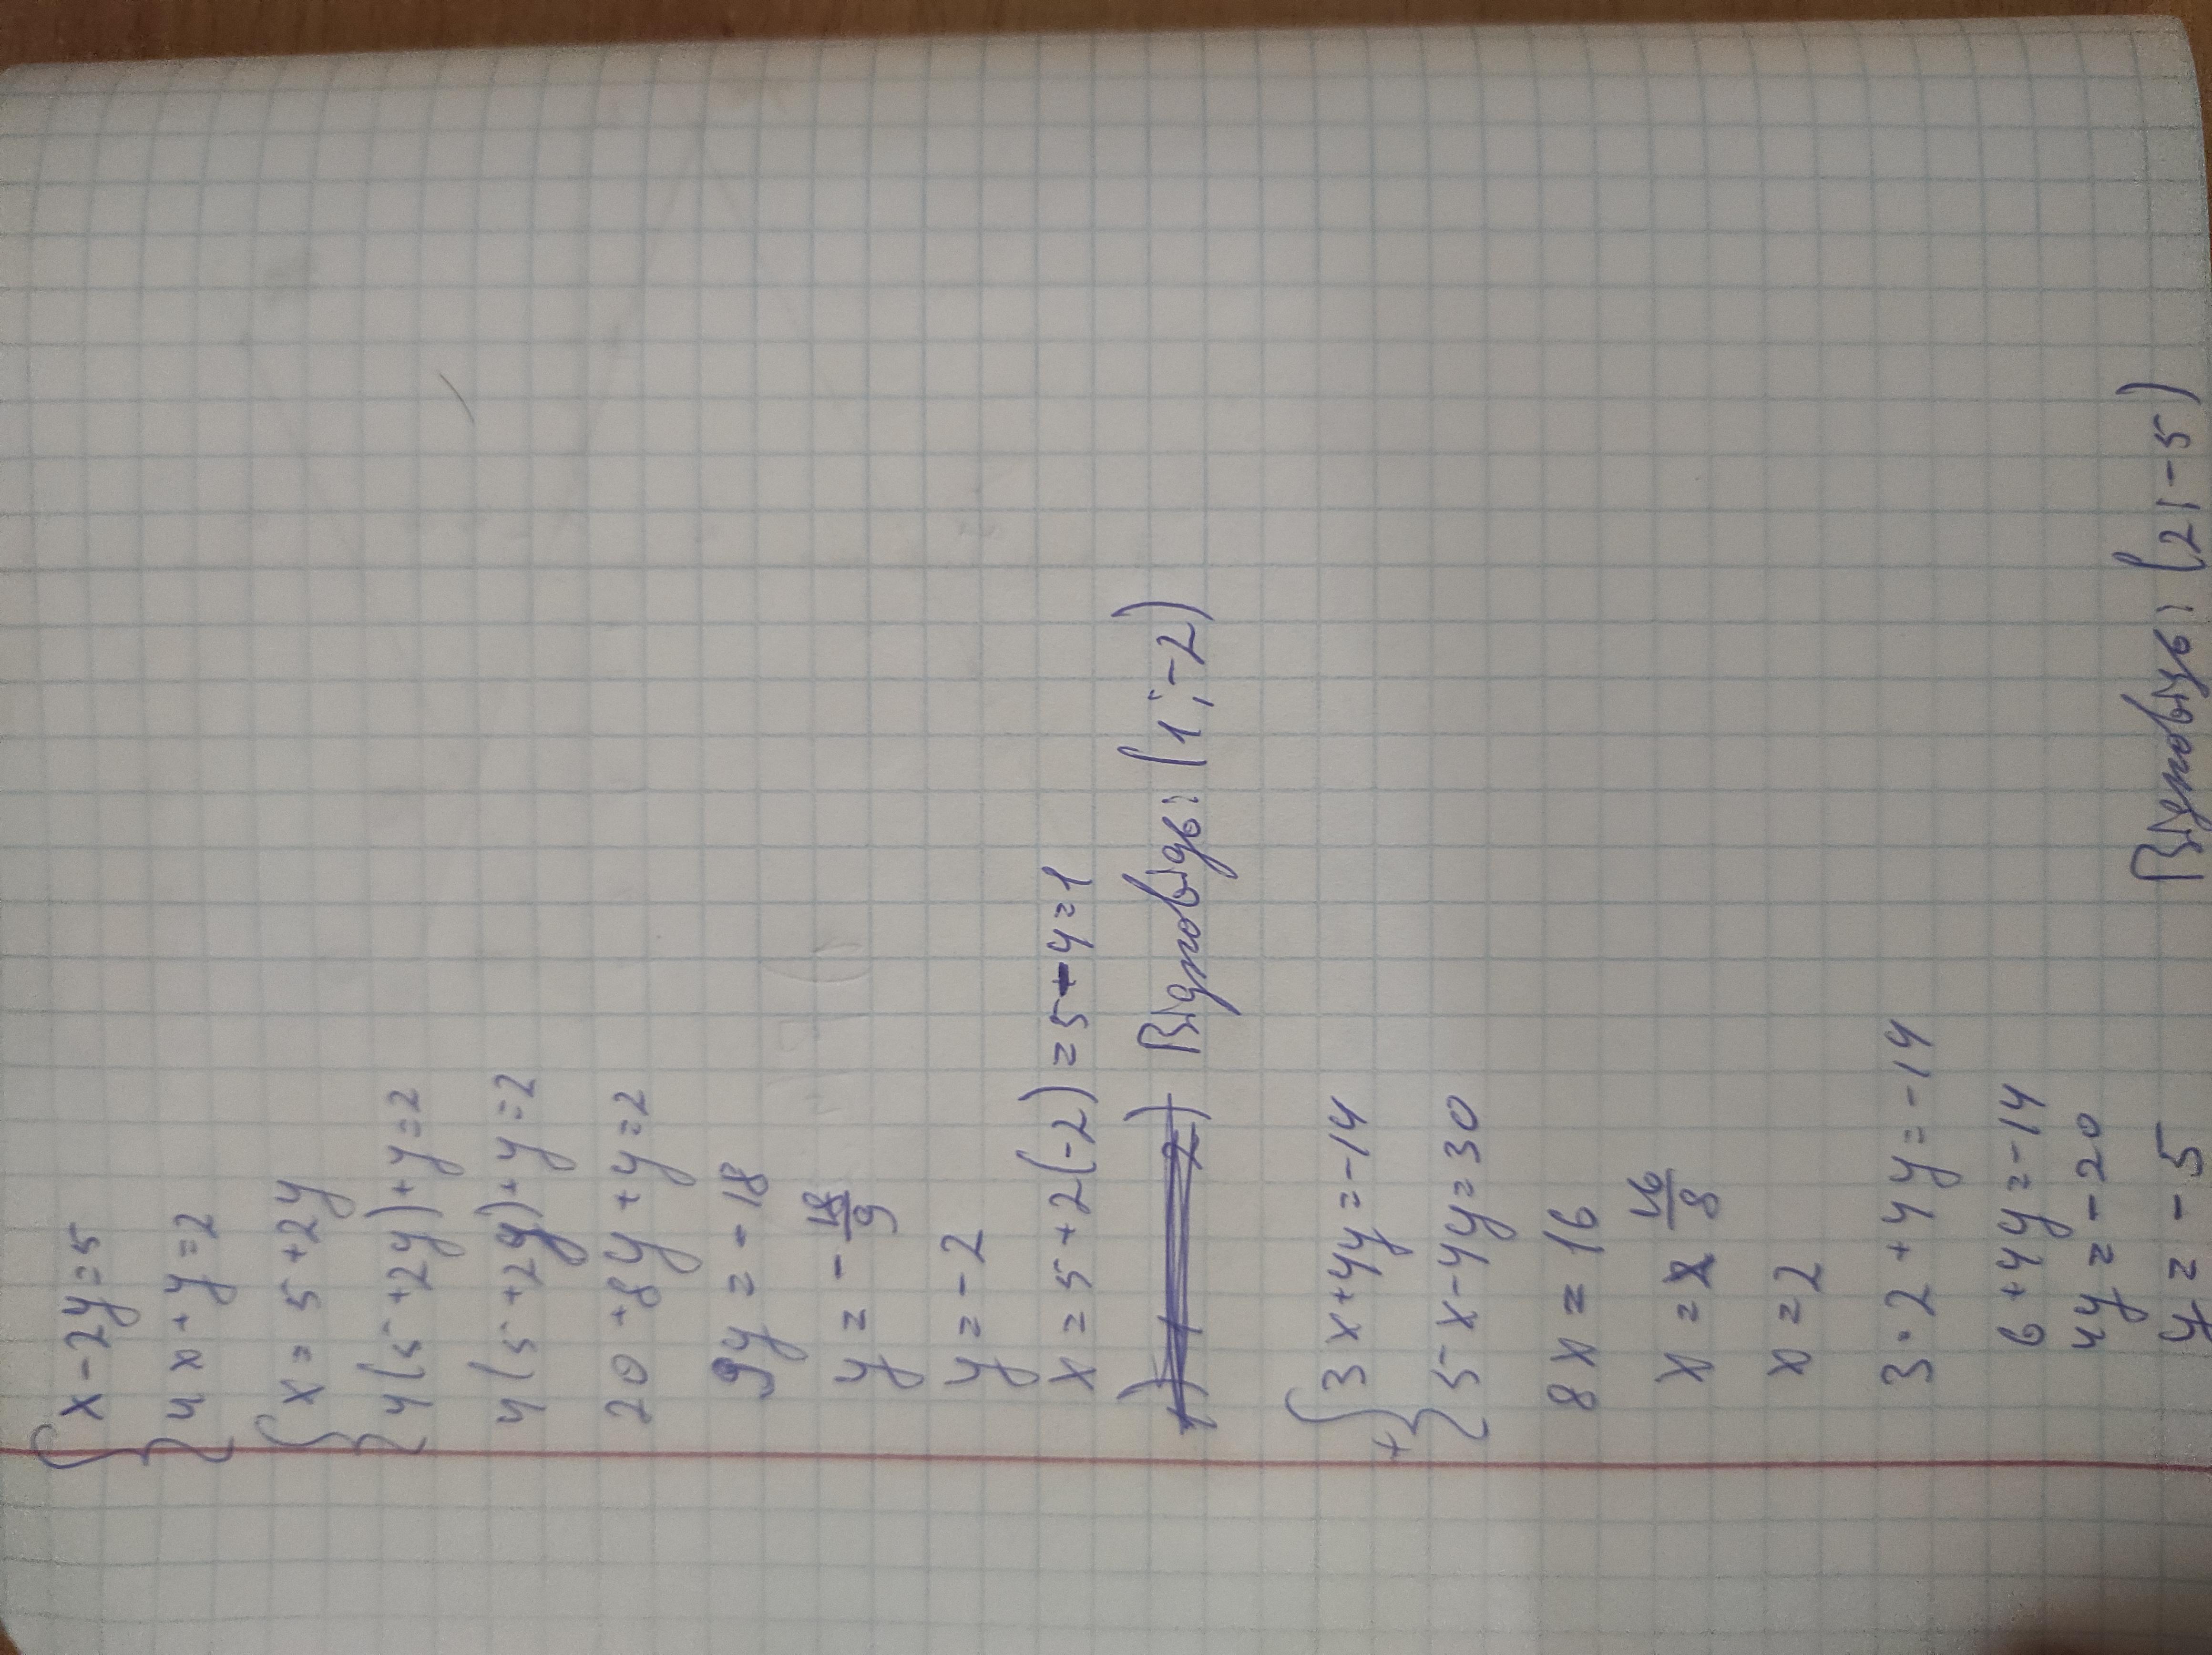 { x - 2y = 5
4x + y = 2
{ x = 5 + 2y
4(5 + 2y) + y = 2
4(5 + 2y) + y = 2
20 + 8y + y = 2
9y = -18
y = -18/9
y = -2
x = 5 + 2(-2) = 5 - 4 = 1
Відповідь: (1; -2)
+ { 3x + 4y = -14
5x - 4y = 30
8x = 16
x = 16/8
x = 2
3·2 + 4y = -14
6 + 4y = -14
4y = -20
y = -5
Відповідь: (2; -5)